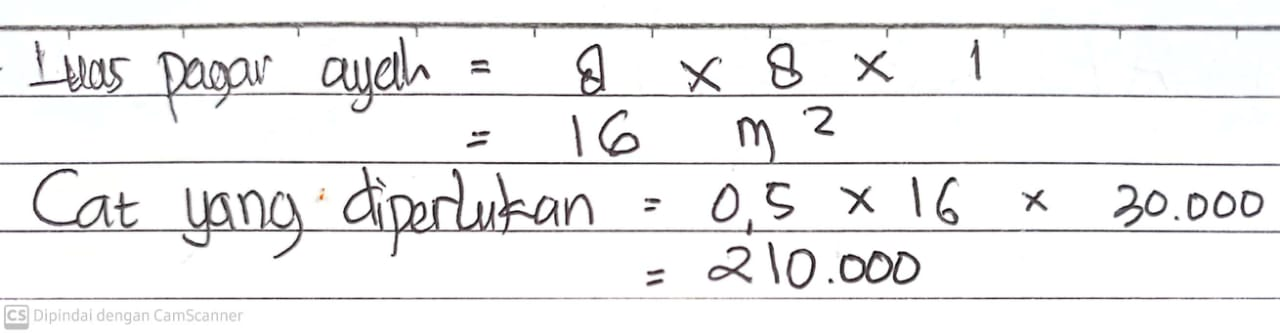 Luas pagar ayah = 2 x 8 x 1
= 16 m²
Cat yang diperlukan = 0,5 x 16 x 30.000
= 210.000
CS Dipindai dengan CamScanner